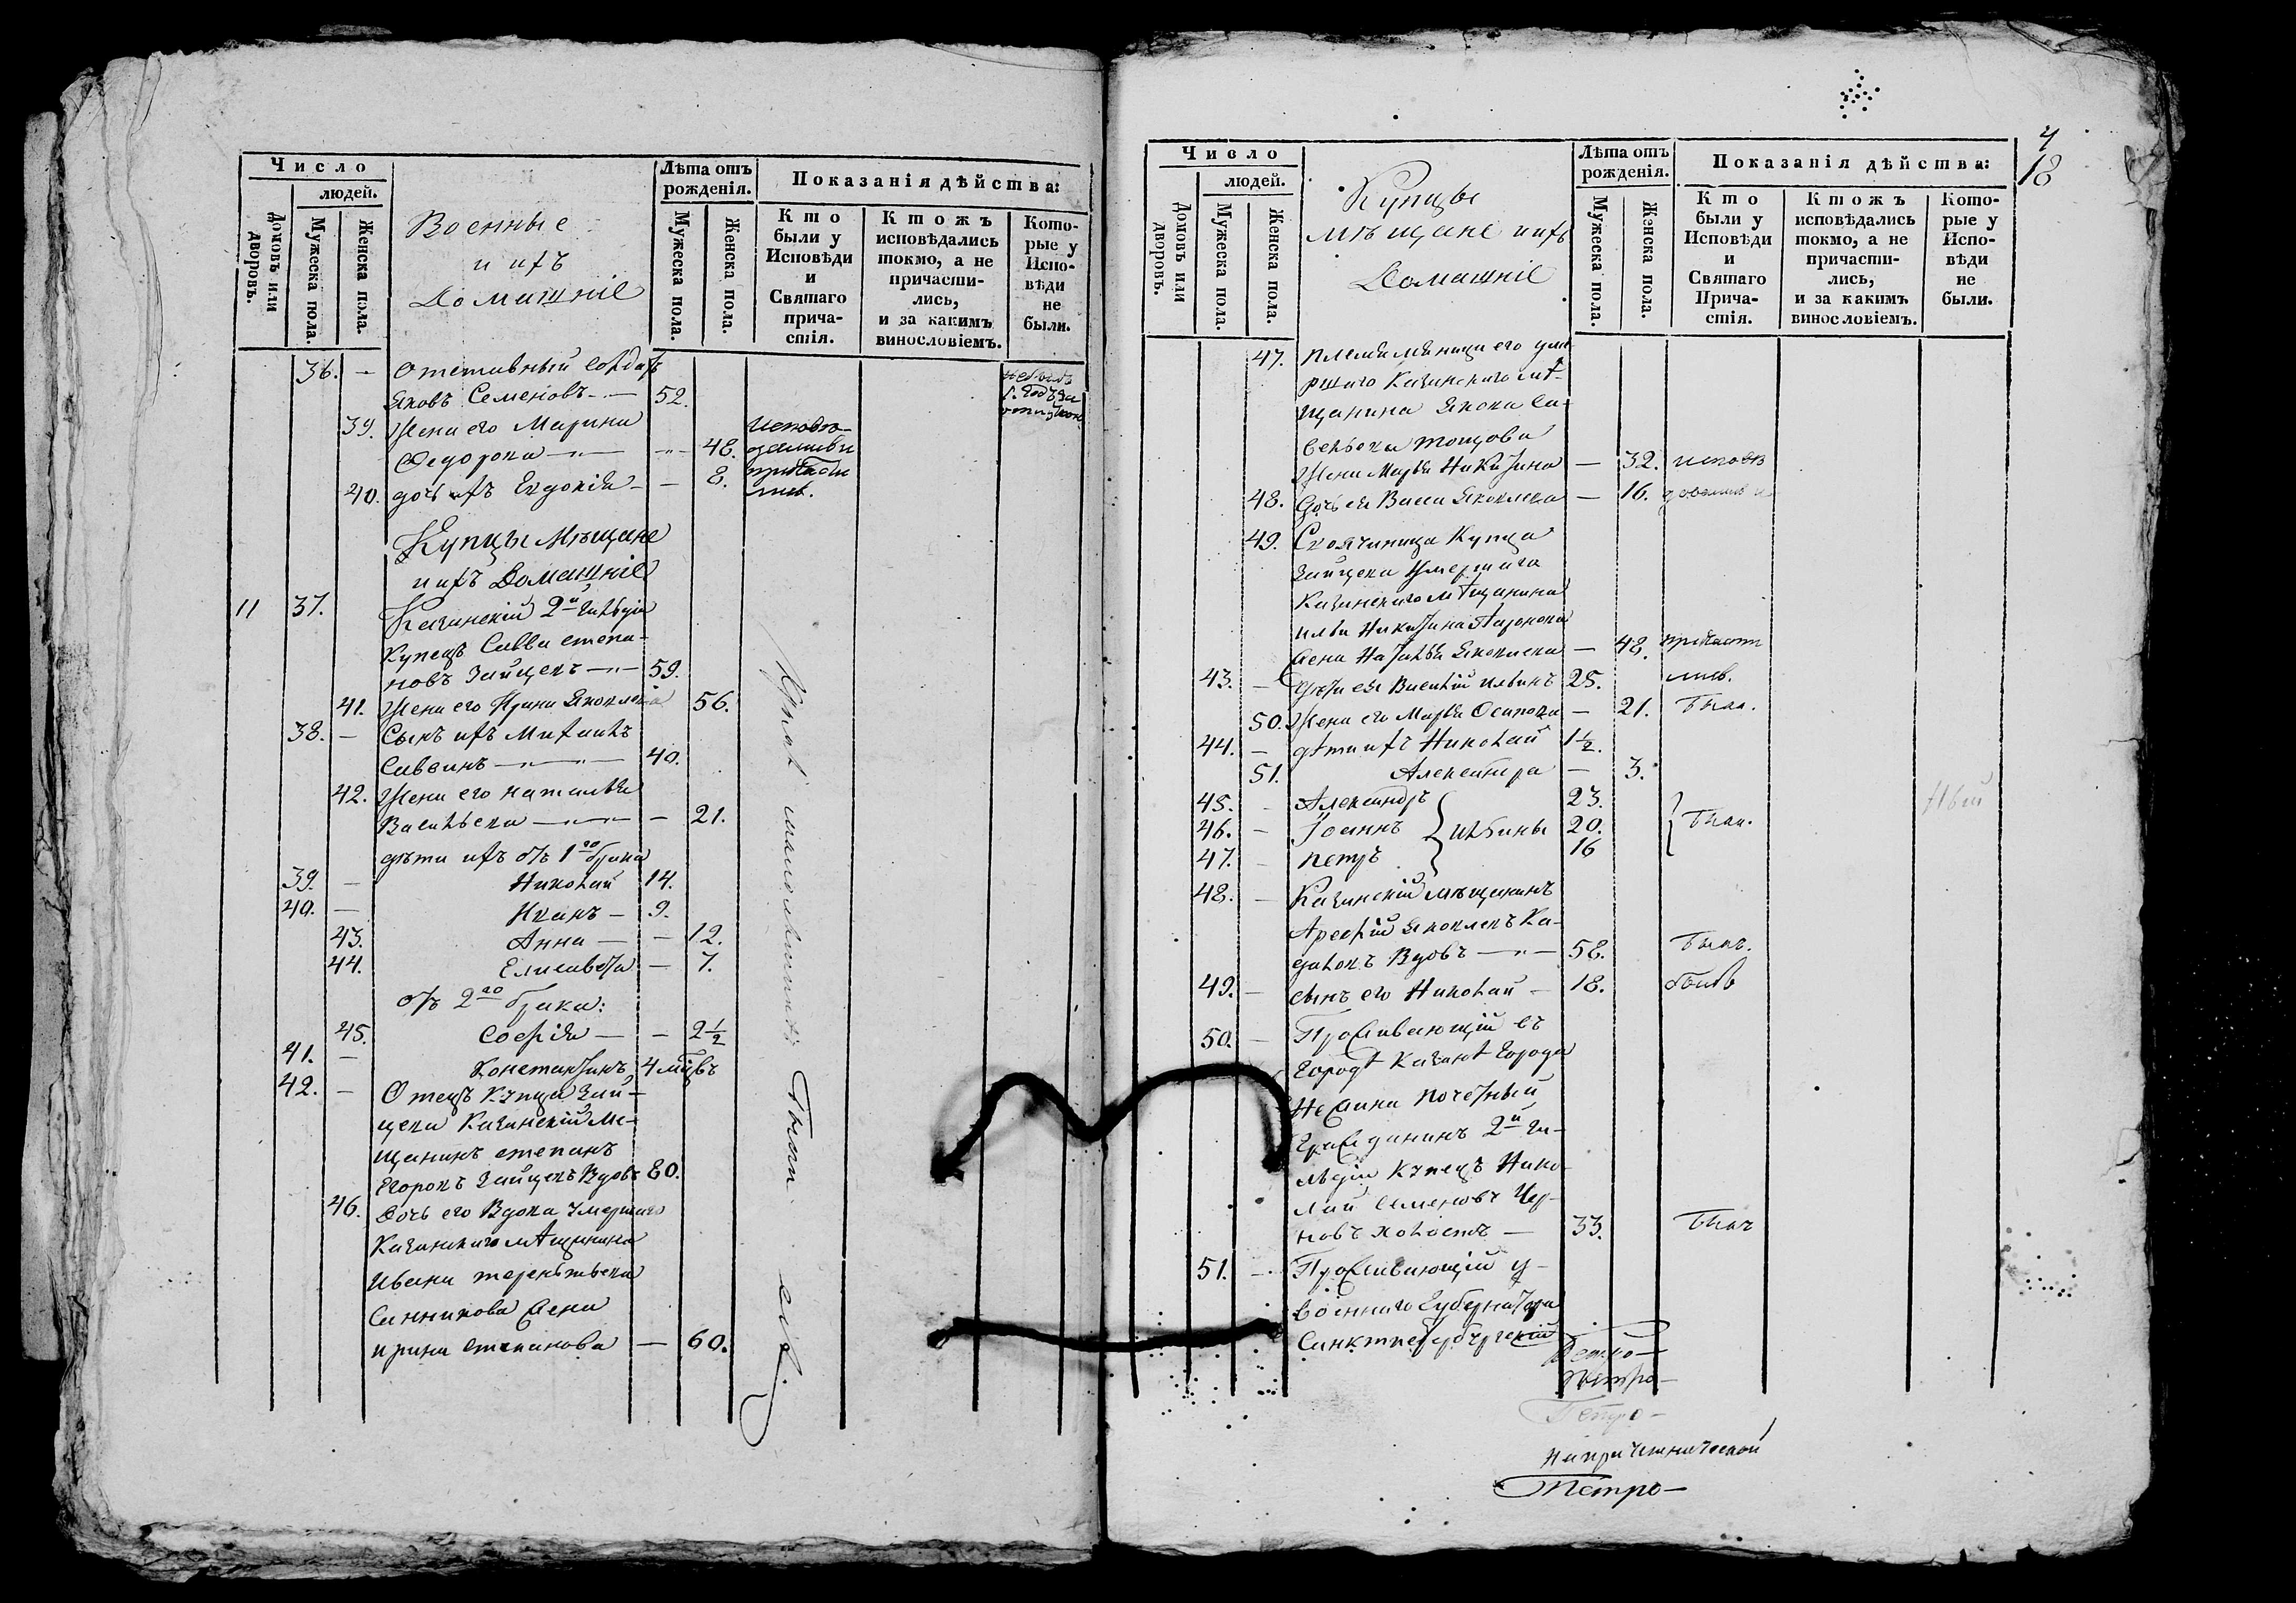 Число
людей.
Домовъ или дворовъ.
Мужеска пола.
Женска пола.
Военные
и ихъ
Домашніе
Лѣта отъ
рожденія.
Мужеска пола.
Женска пола.
Показанія дѣйства:
Кто
были у
Исповѣди
и
Святаго
прича-
стія.
Ктожъ
исповѣдались
токмо, а не
причасти-
лись,
и за какимъ
винословіемъ.
Кото-
рые у
Испо-
вѣди
не
были.
36. — Отставный Солдатъ
Яковъ Семеновъ — 52.
39. Жена его Марина
Федорова — 48.
40. дочь ихъ Евдокія — 8.
Купцы Мѣщане
и ихъ Домашніе
11 37. Казанскій 2й гильдіи
Купецъ Савва степа-
новъ Зайцевъ — 59.
41. Жена его Ирина Яковлева 56.
38. — Сынъ ихъ Михаилъ
Саввинъ — 40.
42. Жена его наталья
Васильева — 21.
дѣти ихъ отъ 1го брака
39. — Николай 14.
40. — Иванъ — 9.
43. Анна — 12.
44. Елисавета — 7.
отъ 2го брака:
45. Софія — 2½
41. — Константинъ 4 мцвъ
42. — Отецъ Купца Зай-
цева Казанскій Ме-
щанинъ степанъ
Егоровъ Зайцевъ Вдовъ 80.
46. Дочь его Вдова умершаго
Казанскаго мѣщанина
Ивана терентьева
Санникова жена
ирина степанова — 60.
Число
людей.
Домовъ или дворовъ.
Мужеска пола.
Женска пола.
Купцы
мѣщане и ихъ
Домашніе
Лѣта отъ
рожденія.
Мужеска пола.
Женска пола.
Показанія дѣйства:
Кто
были у
Исповѣди
и
Святаго
Прича-
стія.
Ктожъ
исповѣдались
токмо, а не
причасти-
лись,
и за какимъ
винословіемъ.
Кото-
рые у
Испо-
вѣди
не
были.
4
18
47. племянница его уме
ршаго Казанскаго мѣ-
щанина Якова Са-
Жена Марья Никитина — 32.
48. Дочь ея Васса Яковлева — 16.
49. Своячиница Купца
Зайцева Умершаго
Казанскаго мѣщанина
Ильи Никитина
жена Наталья Яковлева — 48. причасти
лись.
43. — Дѣти ея Василій ильинъ 25.
50. Жена его Марья Осипова — 21. был.
44. — дѣти ихъ Николай 1½.
51. Александра — 3.
45. — Александръ 23.
46. — Іоаннъ } Ильины 20. } были.
47. — петръ 16
48. — Казанскій мѣщанинъ
Арефій Яковлевъ Ка-
Вдовъ — 58. былъ.
49. — сынъ его Николай — 18. былъ
50. — Проживающій въ
Городѣ Казанѣ Города
Нежина почетный
Гражданинъ 2й ги-
льдіи купецъ Нико-
лай Семеновъ Чер-
новъ холостъ — 33. былъ
51. — Проживающій у
военнаго Губернатора
Санктпетербургскій
Петро-
Петро-
Петро-
Петро-